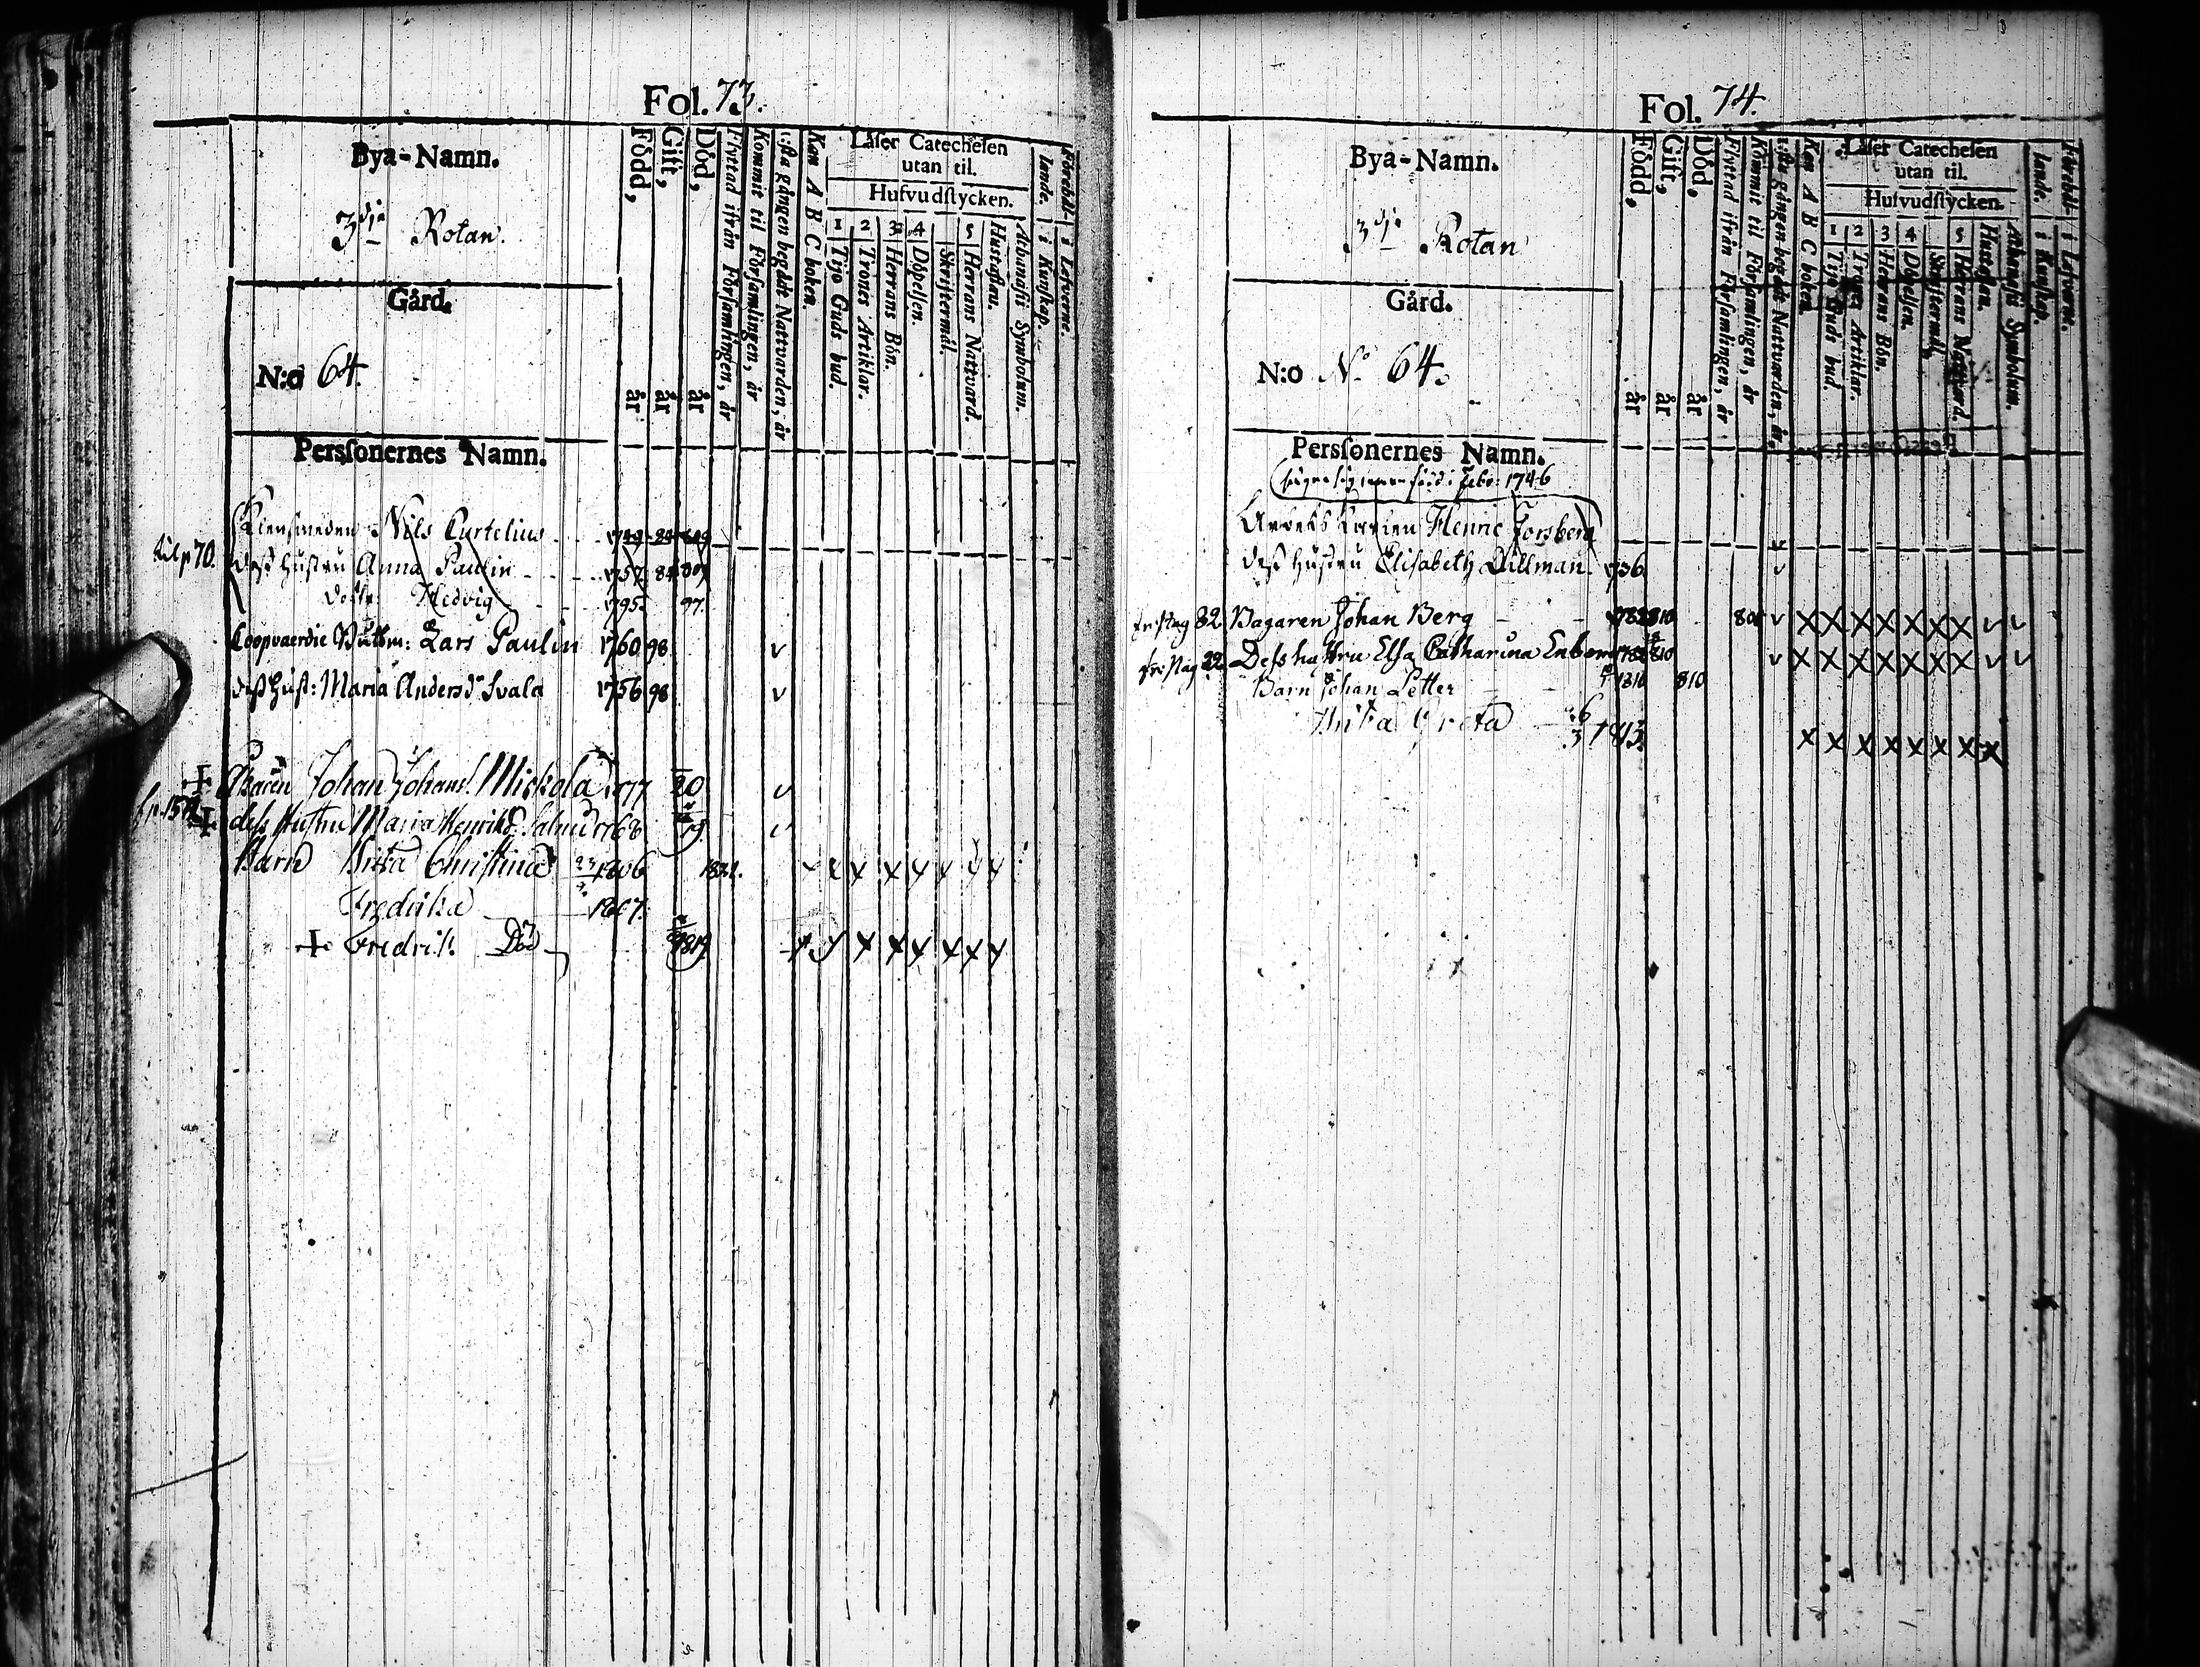 Fol. 73.
Bya-Namn.
3dje Rotan.
Gård.
N:o 64.
Perssonernes Namn.
Född, år
Gift, år
Död, år
Flyttad ifrån Församlingen, år
Kommit til Församlingen, år
1:sta gången begådt Nattvarden, år
Kan A B C boken.
Läser Catechesen
utan til.
Hufvudstycken.
1 Tijo Guds bud.
2 Trones Artiklar.
3 Herrans Bön.
4 Döpelsen.
Skriftermål.
5 Herrans Nattvard.
Hustaflan.
Athanasii Symbolum.
Förehållande.
i Kunskap.
i Lefverne.
Klensmeden Nils Curtelius 1749 84 809
til p 70. dess Hustru Anna Paulin 1757 84 809
dottr. Hedvig 1795. 97.
Coopvaerdie Båtsm: Lars Paulin 1760 98 v
dess Hust: Maria Andersd:r Svala 1756 98 v
+ Johan Johans. Miekola 1777 20 v
+ dess Hustru Maria Henriksd. 1768 19. v
Barn Brita Christina 23 1806 1822. x x x x x x x
Fredrika 1807.
+ Fredrik Död 1819 x x x x x x x x
Fol. 74.
Bya-Namn.
3dje Rotan
Gård.
N:o N:o 64.
Perssonernes Namn.
Född, år
Gift, år
Död, år
Flyttad ifrån Församlingen, år
Kommit til Församlingen, år
1:sta gången begådt Nattvarden, år
Kan A B C boken.
Läser Catechesen
utan til.
Hufvudstycken.
1 Tijo Guds bud.
2 Trones Artiklar.
3 Herrans Bön.
4 Döpelsen.
Skriftermål.
5 Herrans Nattvard.
Hustaflan.
Athanasii Symbolum.
Förehållande.
i Kunskap.
i Lefverne.
säger sig vara född i Febr: 1746
Arbets Karlen Henric Forsberg v
dess Hustru Elisabeth Dillman. 1736 v
82 Bagaren Johan Berg 1782 810 804 v x x x x x x x v v
22 Dess hustru Elsa Catharina Enberg 178 810 v x x x x x x x v v
Barn Johan Petter 1810 810
Greta 26 3 1813. x x x x x x x x